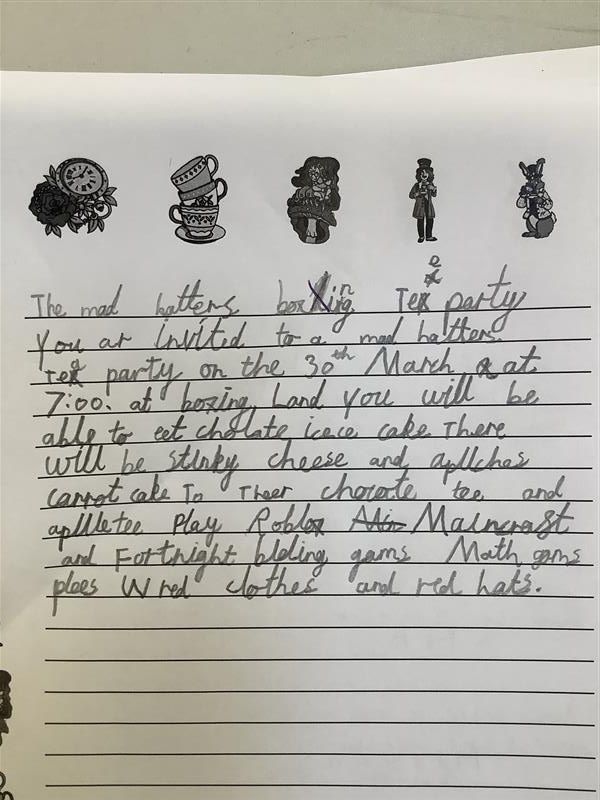 The mad hatters boxing Tea party
You ar invited to a mad hatters
Tea party on the 30th March at
7:00. at boxing Land You will be
able to eet cholate icece cake There
will be stinky cheese and apllches
carrot cake To Theer chocote tee and
apllletee Play Roblox Maincraft
and Fortnight blding gams Math gams
plees W red clothes and red hats.